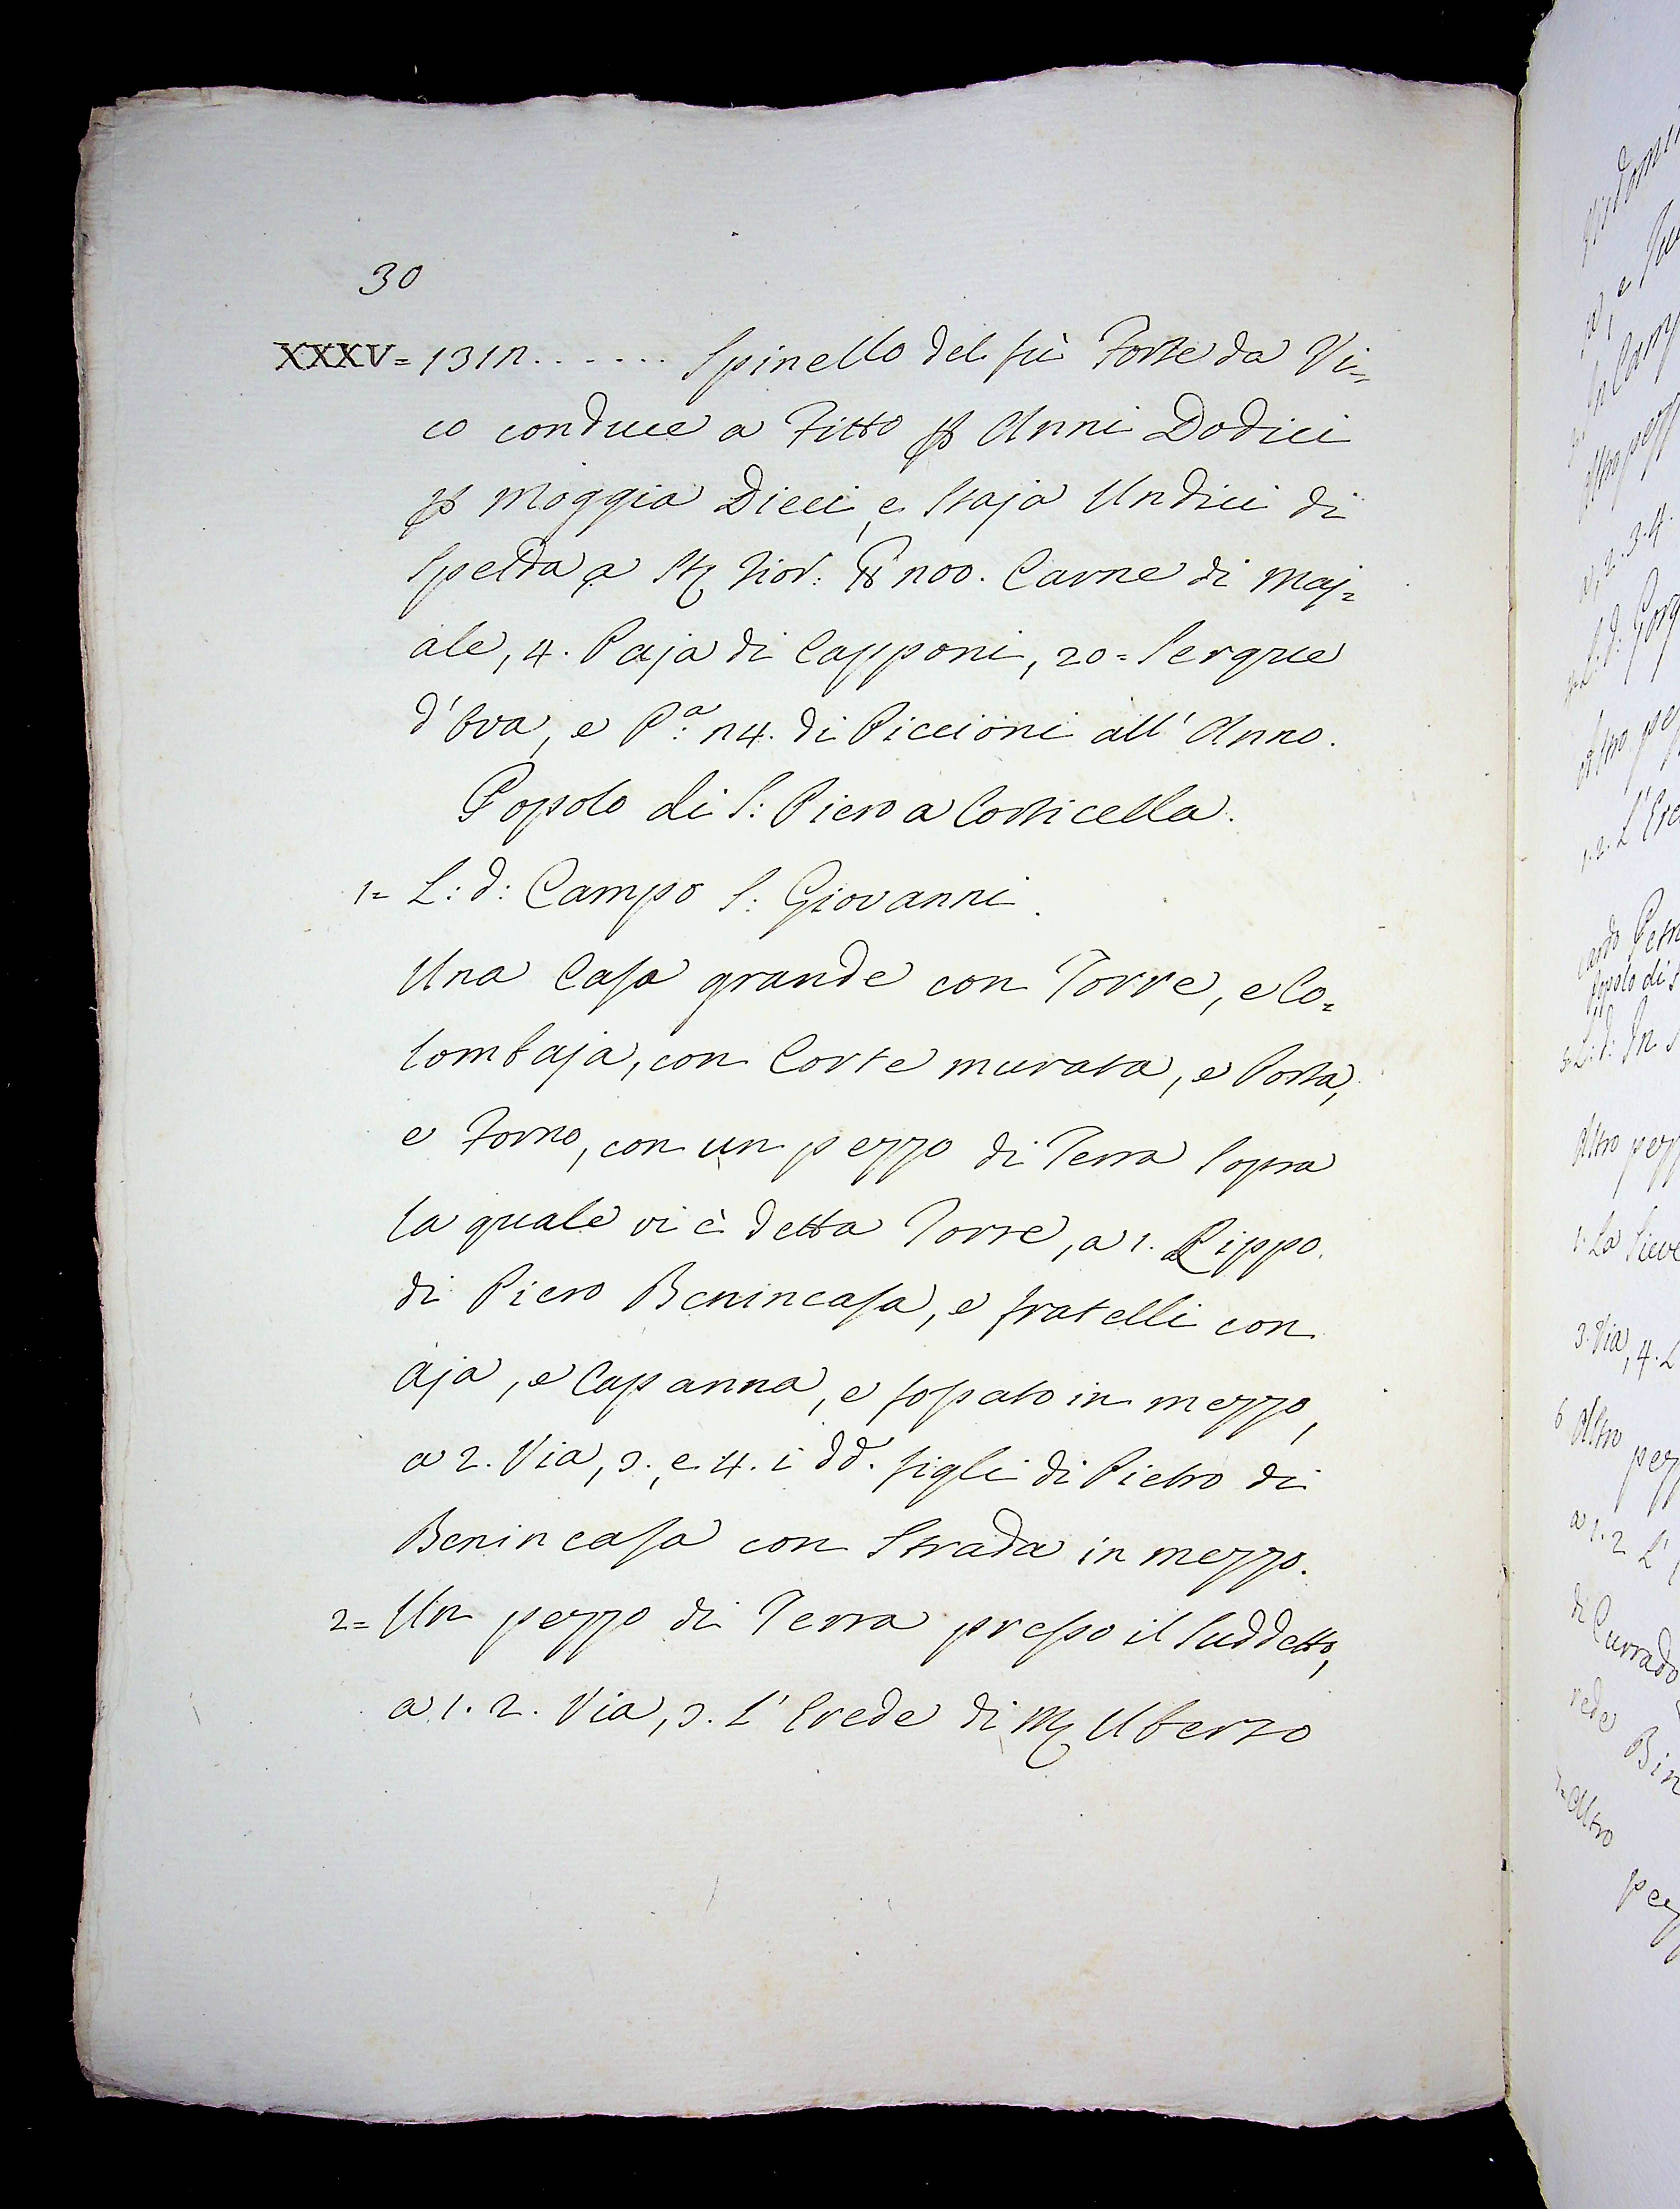 30
XXXV = 1312. . . . . . Spinello del fù Forte da Vi=
co conduce a Fitto p Anni Dodici
p Moggia Dieci, e Staja Undici di
Spelda a St Fior: lb 200. Carne di Maj=
ale, 4. Paja di Capponi, 20 = Serque
d'Ova, e Pa: 24. di Piccioni all'Anno.
Popolo di S: Piero a Corticella.
1= L: d: Campo S: Giovanni.
Una Casa grande con Torre, e Co=
lombaja, con Corte murata, e Porta,
e Forno, con un pezzo di Terra sopra
la quale vi è detta Torre, a 1. Pippo
di Piero Benincasa, e fratelli con
Aja, e Capanna, e fossato in mezzo,
a 2. Via, 3., e 4. i dd. figli di Pietro di
Benincasa con Strada in mezzo.
2= Un pezzo di Terra presso il suddetto,
a 1. 2. Via, 3. L'Erede di M Uberto
altro pezz
1. 2. L'Ere
Altro pezz
1. La Sieve
3. Via, 4. L
6 Altro
pezz
a 1. 2 L'
di Currado
rede Bin
7= Altro
pez